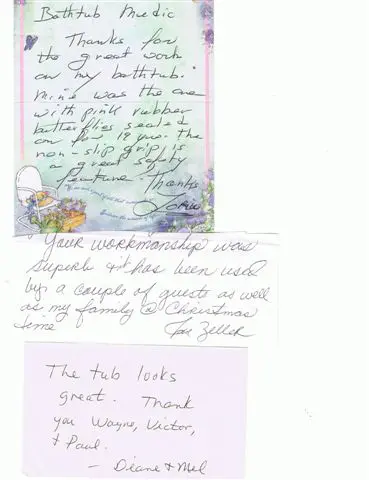 Bathtub Medic
Thanks for
the great work
on my bathtub.
Mine was the one
with pink rubber
butterflies sealed
on for 19 yrs. The
non-slip grip is
a great safety
feature. Thanks
Your workmanship was
superb & it has been used
by a couple of guests as well
as my family @ Christmas
time Zeller
The tub looks
great. Thank
you Wayne, Victor,
& Paul.
- Diane & Mel